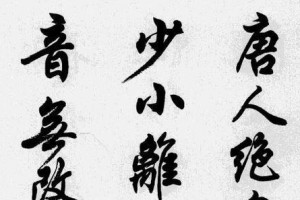 唐人绝
少小離
音無改